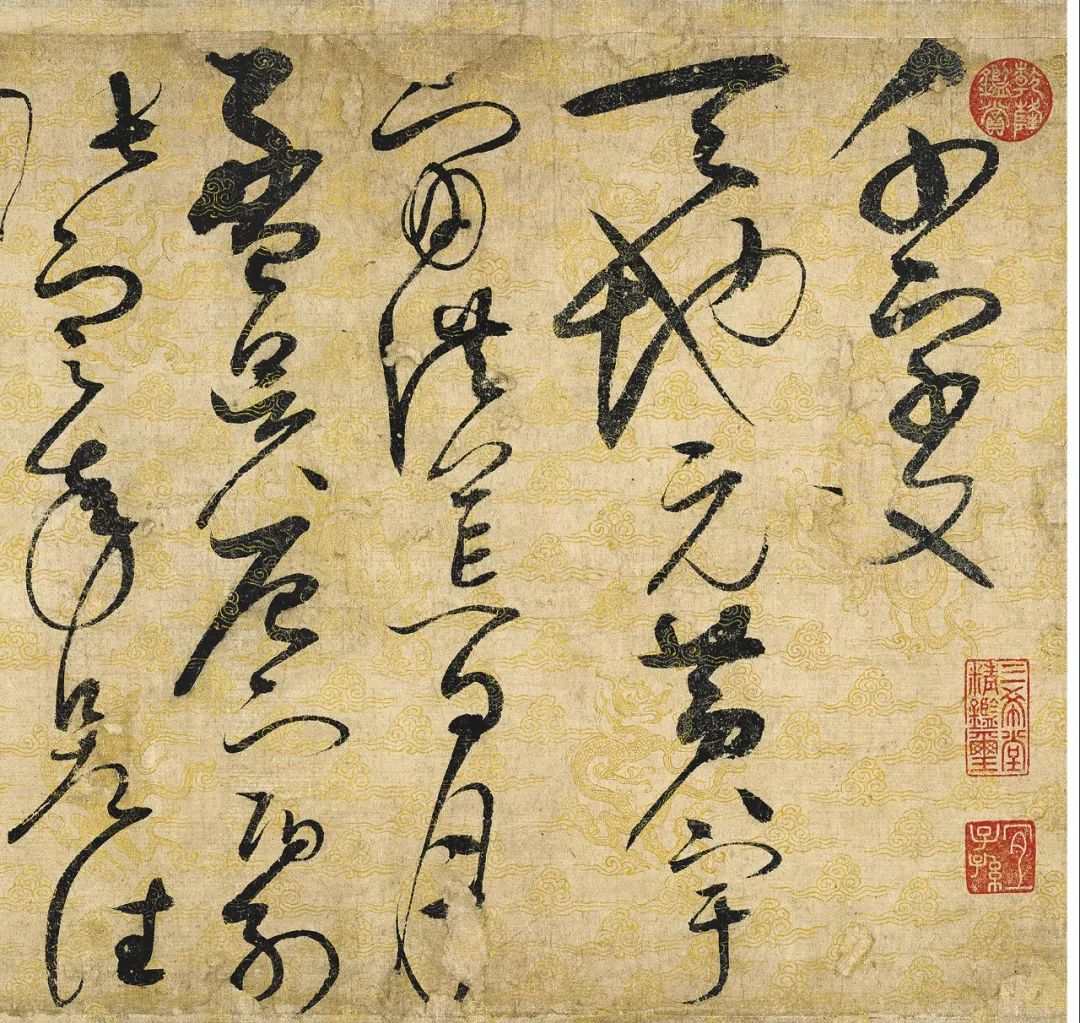 乾隆鑑賞
三希堂精鑑璽
宜子孫
千字文
天地元黃宇
宙洪荒日月
盈昃辰宿列
張寒來暑往